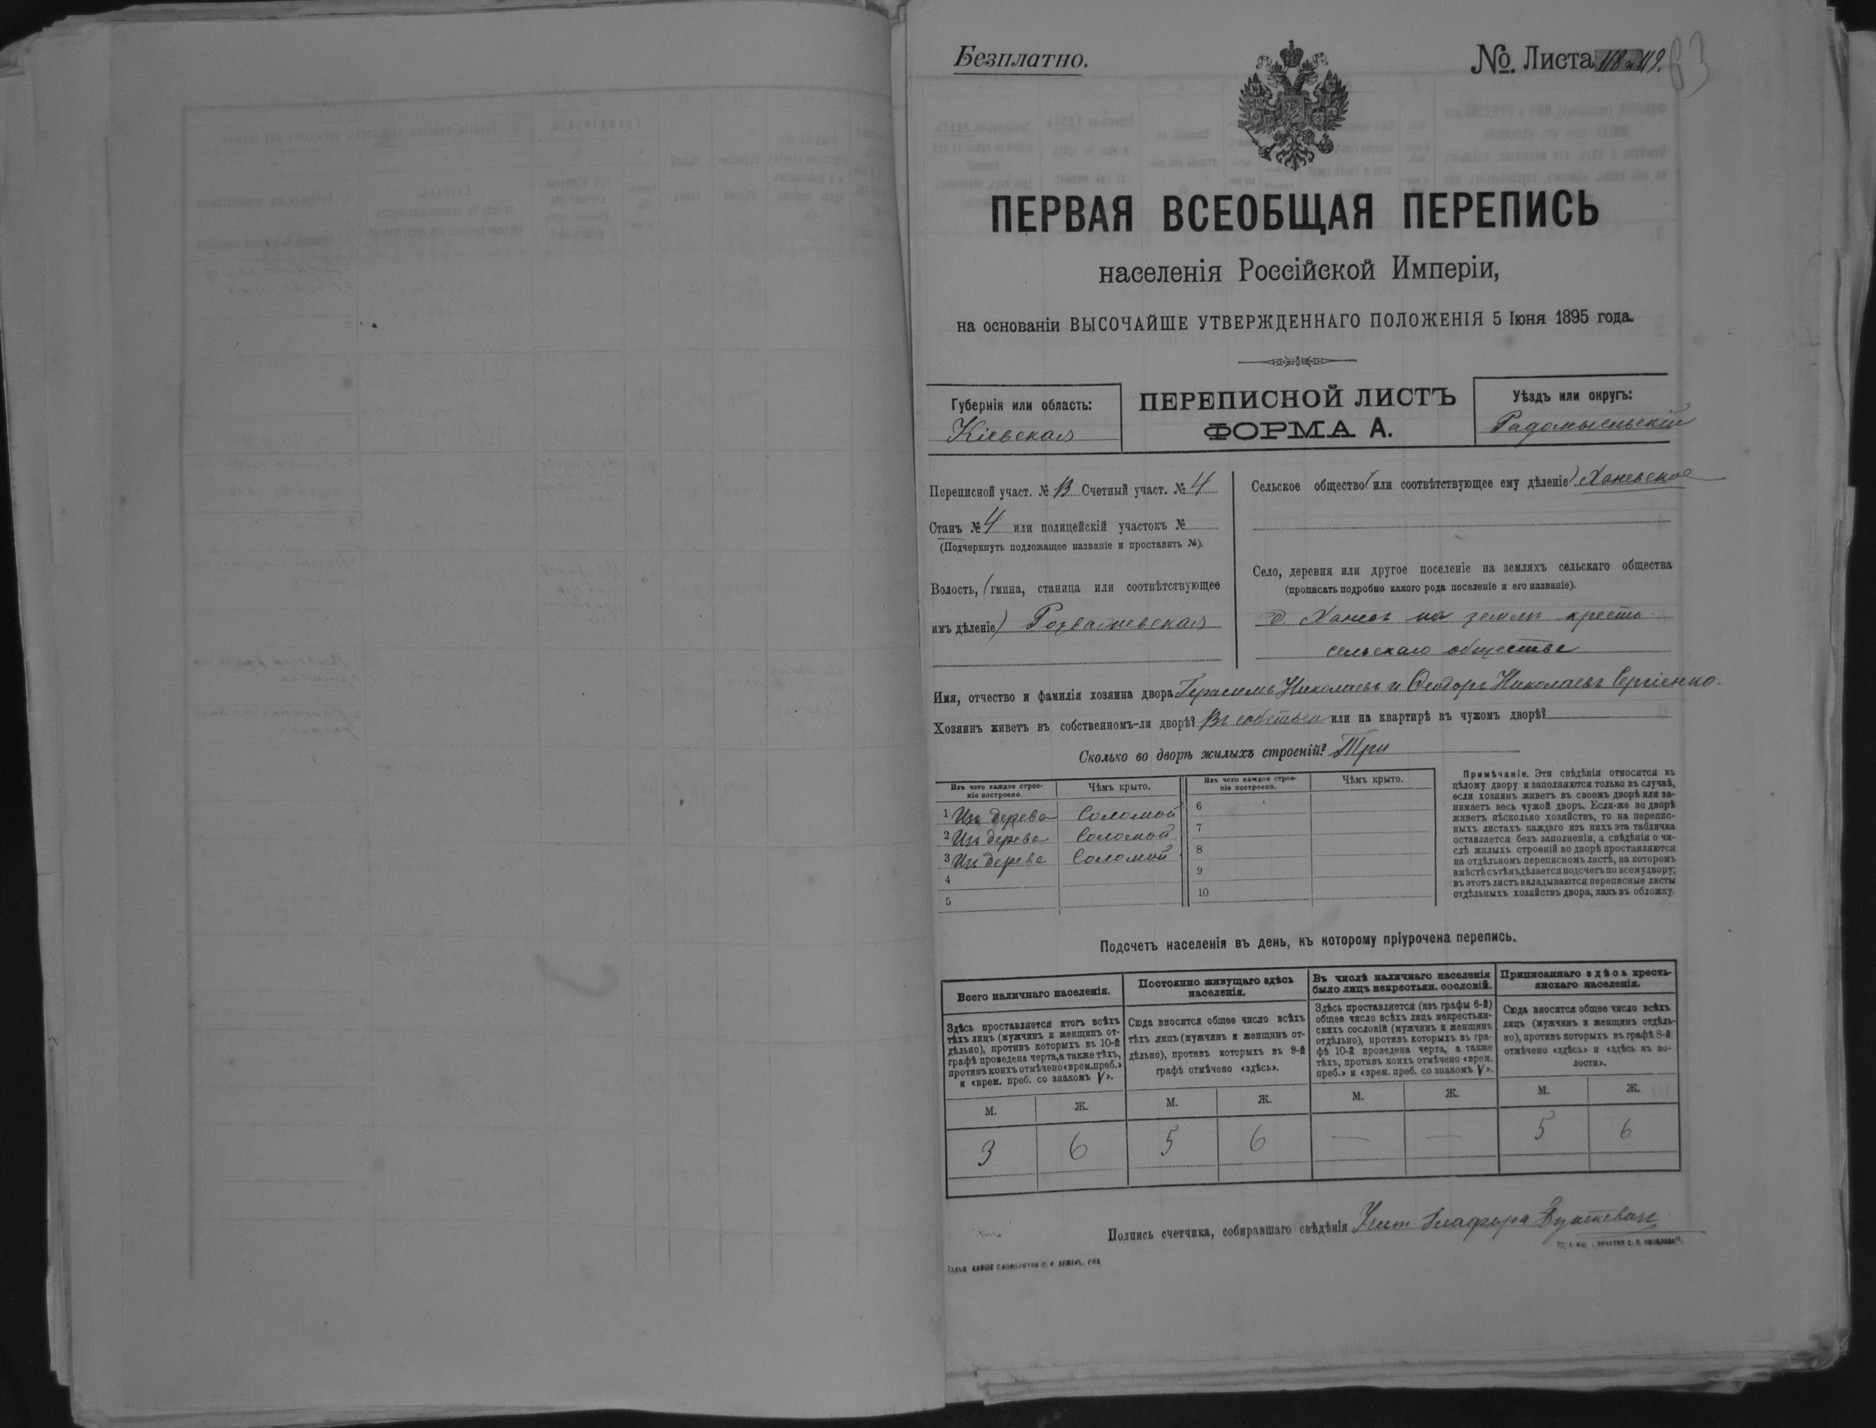 Безплатно.
№. Листа 118 и 119.
63
ПЕРВАЯ ВСЕОБЩАЯ ПЕРЕПИСЬ
населенія Россійской Имперіи,
на основаніи ВЫСОЧАЙШЕ УТВЕРЖДЕННАГО ПОЛОЖЕНІЯ 5 Іюня 1895 года.
Губернія или область:
Кіевская
ПЕРЕПИСНОЙ ЛИСТЪ
ФОРМА А.
Уѣздъ или округъ:
Радомысльскій
Переписной участ. № Счетный участ. № 4
Станъ № 4 или полицейскій участокъ №
(Подчеркнуть подлежащее названіе и проставить №).
Волость, (гмина, станица или соотвѣтствующее
имъ дѣленіе) Розважевская
Сельское общество (или соотвѣтствующее ему дѣленіе) Ханевское
Село, деревня или другое поселеніе на земляхъ сельскаго общества
(прописать подробно какого рода поселеніе и его названіе).
д. Ханев на земле кресть
сельскаго общества
Имя, отчество и фамилія хозяина двора Герасимъ Николаевъ и Ѳеодоръ Николаевъ Сергіенко.
Хозяинъ живетъ въ собственномъ-ли дворѣ? Въ собствен или на квартирѣ въ чужомъ дворѣ?
Сколько во дворѣ жилыхъ строеній? Три
Изъ чего каждое строе-
ніе построено.
Чѣмъ крыто.
Изъ чего каждое строе-
ніе построено.
Чѣмъ крыто.
1 Изъ дерева Соломой 6
2 Изъ дерева Соломой 7
3 Изъ дерева Соломой 8
4 9
5 10
Примѣчаніе. Эти свѣдѣнія относятся къ
цѣлому двору и заполняются только въ случаѣ,
если хозяинъ живетъ въ своемъ дворѣ или за-
нимаетъ весь чужой дворъ. Если-же во дворѣ
живетъ нѣсколько хозяйствъ, то на перепис-
ныхъ листахъ каждаго изъ нихъ эта табличка
оставляется безъ заполненія, а свѣдѣнія о чи-
слѣ жилыхъ строеній во дворѣ проставляются
на отдѣльномъ переписномъ листѣ, на которомъ
вмѣстѣ съ тѣмъ дѣлается подсчетъ по всему двору;
въ этотъ листъ вкладываются переписные листы
отдѣльныхъ хозяйствъ двора, какъ въ обложку.
Подсчетъ населенія въ день, къ которому пріурочена перепись.
Всего наличнаго населенія.
Здѣсь проставляется итогъ всѣхъ
тѣхъ лицъ (мужчинъ и женщинъ от-
дѣльно), противъ которыхъ въ 10-й
графѣ проведена черта, а также тѣхъ,
противъ коихъ отмѣчено «врем. преб.»
и «врем. преб. со знакомъ V».
Постоянно живущаго здѣсь
населенія.
Сюда вносится общее число всѣхъ
тѣхъ лицъ (мужчинъ и женщинъ от-
дѣльно), противъ которыхъ въ 9-й
графѣ отмѣчено «здѣсь».
Въ числѣ наличнаго населенія
было лицъ некрестьян. сословій.
Здѣсь проставляется (изъ графы 6-й)
общее число всѣхъ лицъ некрестьян-
скихъ сословій (мужчинъ и женщинъ
отдѣльно), противъ которыхъ въ гра-
фѣ 10-й проведена черта, а также
тѣхъ, противъ коихъ отмѣчено «врем.
преб.» и «врем. преб. со знакомъ V».
Приписаннаго здѣсь кресть-
янскаго населенія.
Сюда вносится общее число всѣхъ
лицъ (мужчинъ и женщинъ отдѣль-
но), противъ которыхъ въ графѣ 8-й
отмѣчено «здѣсь» и «здѣсь въ во-
лости».
М. Ж. М. Ж. М. Ж. М. Ж.
3 6 5 6 — — 5 6
Подпись счетчика, собиравшаго свѣдѣнія